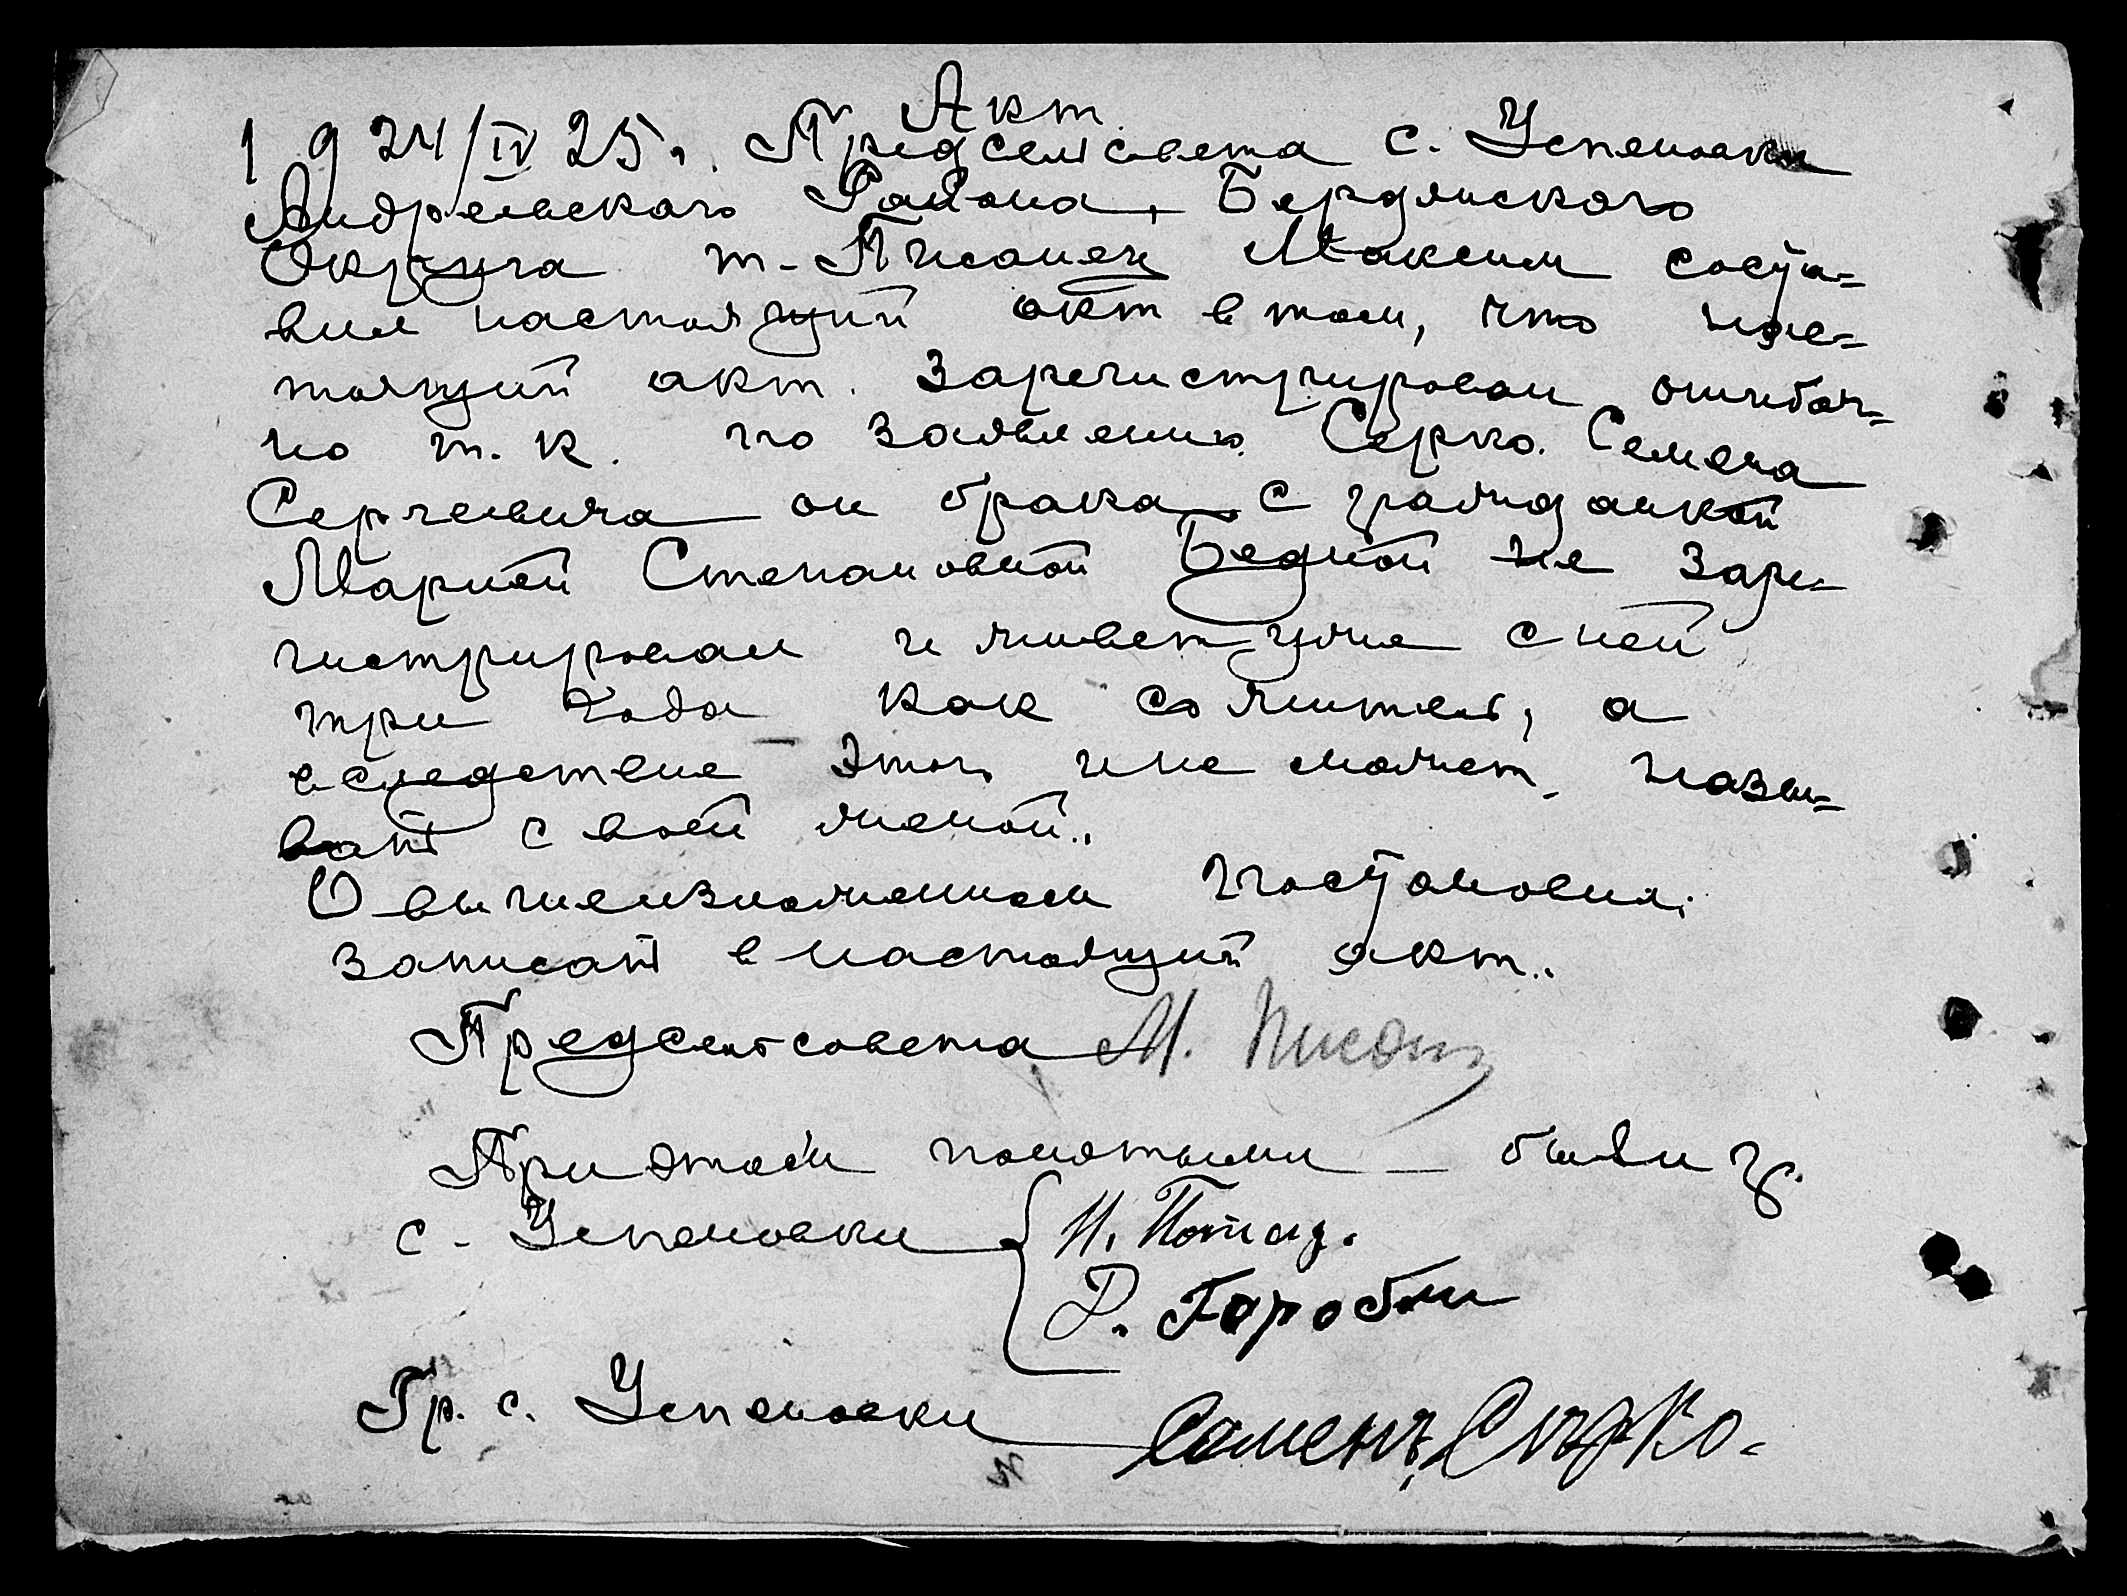 Акт.
1924/IV 25г. Предсельсовета с. Успеновки
Андреевского Района, Бердянского
Округа т. Писанец Максим соста-
вил настоящий акт в том, что нас-
тоящий акт. зарегистрирован ошибоч-
но т.к. по заявлению Серко. Семена
Сергеевича он брака с гражданкой
Марией Степановной Бедной не заре-
гистрировал и живет уже с ней
три года как сожитель, а
вследствие этого и не может, назы-
вать своей женой..
О вышеизложенном постановил:
записать в настоящий акт..
Предсельсовета М. Писанец
При этом понятыми – были гр.
с. Успеновки
Гр. с. Успеновки Семенъ Сирко.